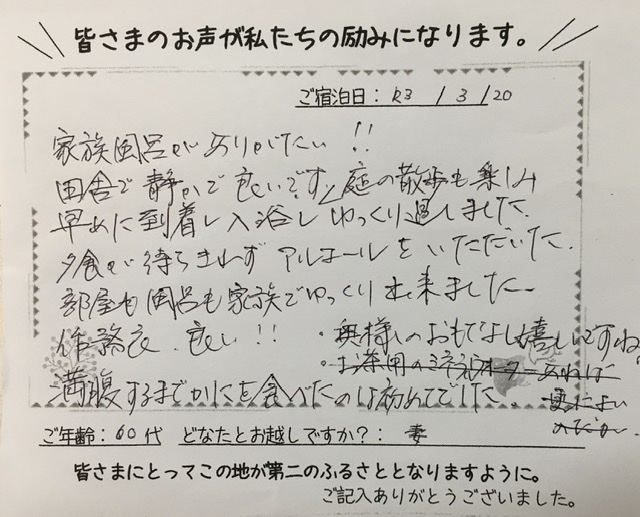 皆さまのお声が私たちの励みになります。
ご宿泊日: R3 / 3 / 20
家族風呂がありがたい!!
田舎で静かで良いです。庭の散歩も楽しみ
早めに到着し入浴しゆっくり過しました。
夕食が待ちきれず アルコールをいただいた。
部屋も風呂も家族でゆっくり出来ました。
作務衣 良い!! ・奥様のおもてなし嬉しいですね。
・お茶用のミネラルウォーターあれば
更によい
満腹するまでかにを食べたのは初めてでした。
ご年齢: 60代 どなたとお越しですか?: 妻
皆さまにとってこの地が第二のふるさととなりますように。
ご記入ありがとうございました。